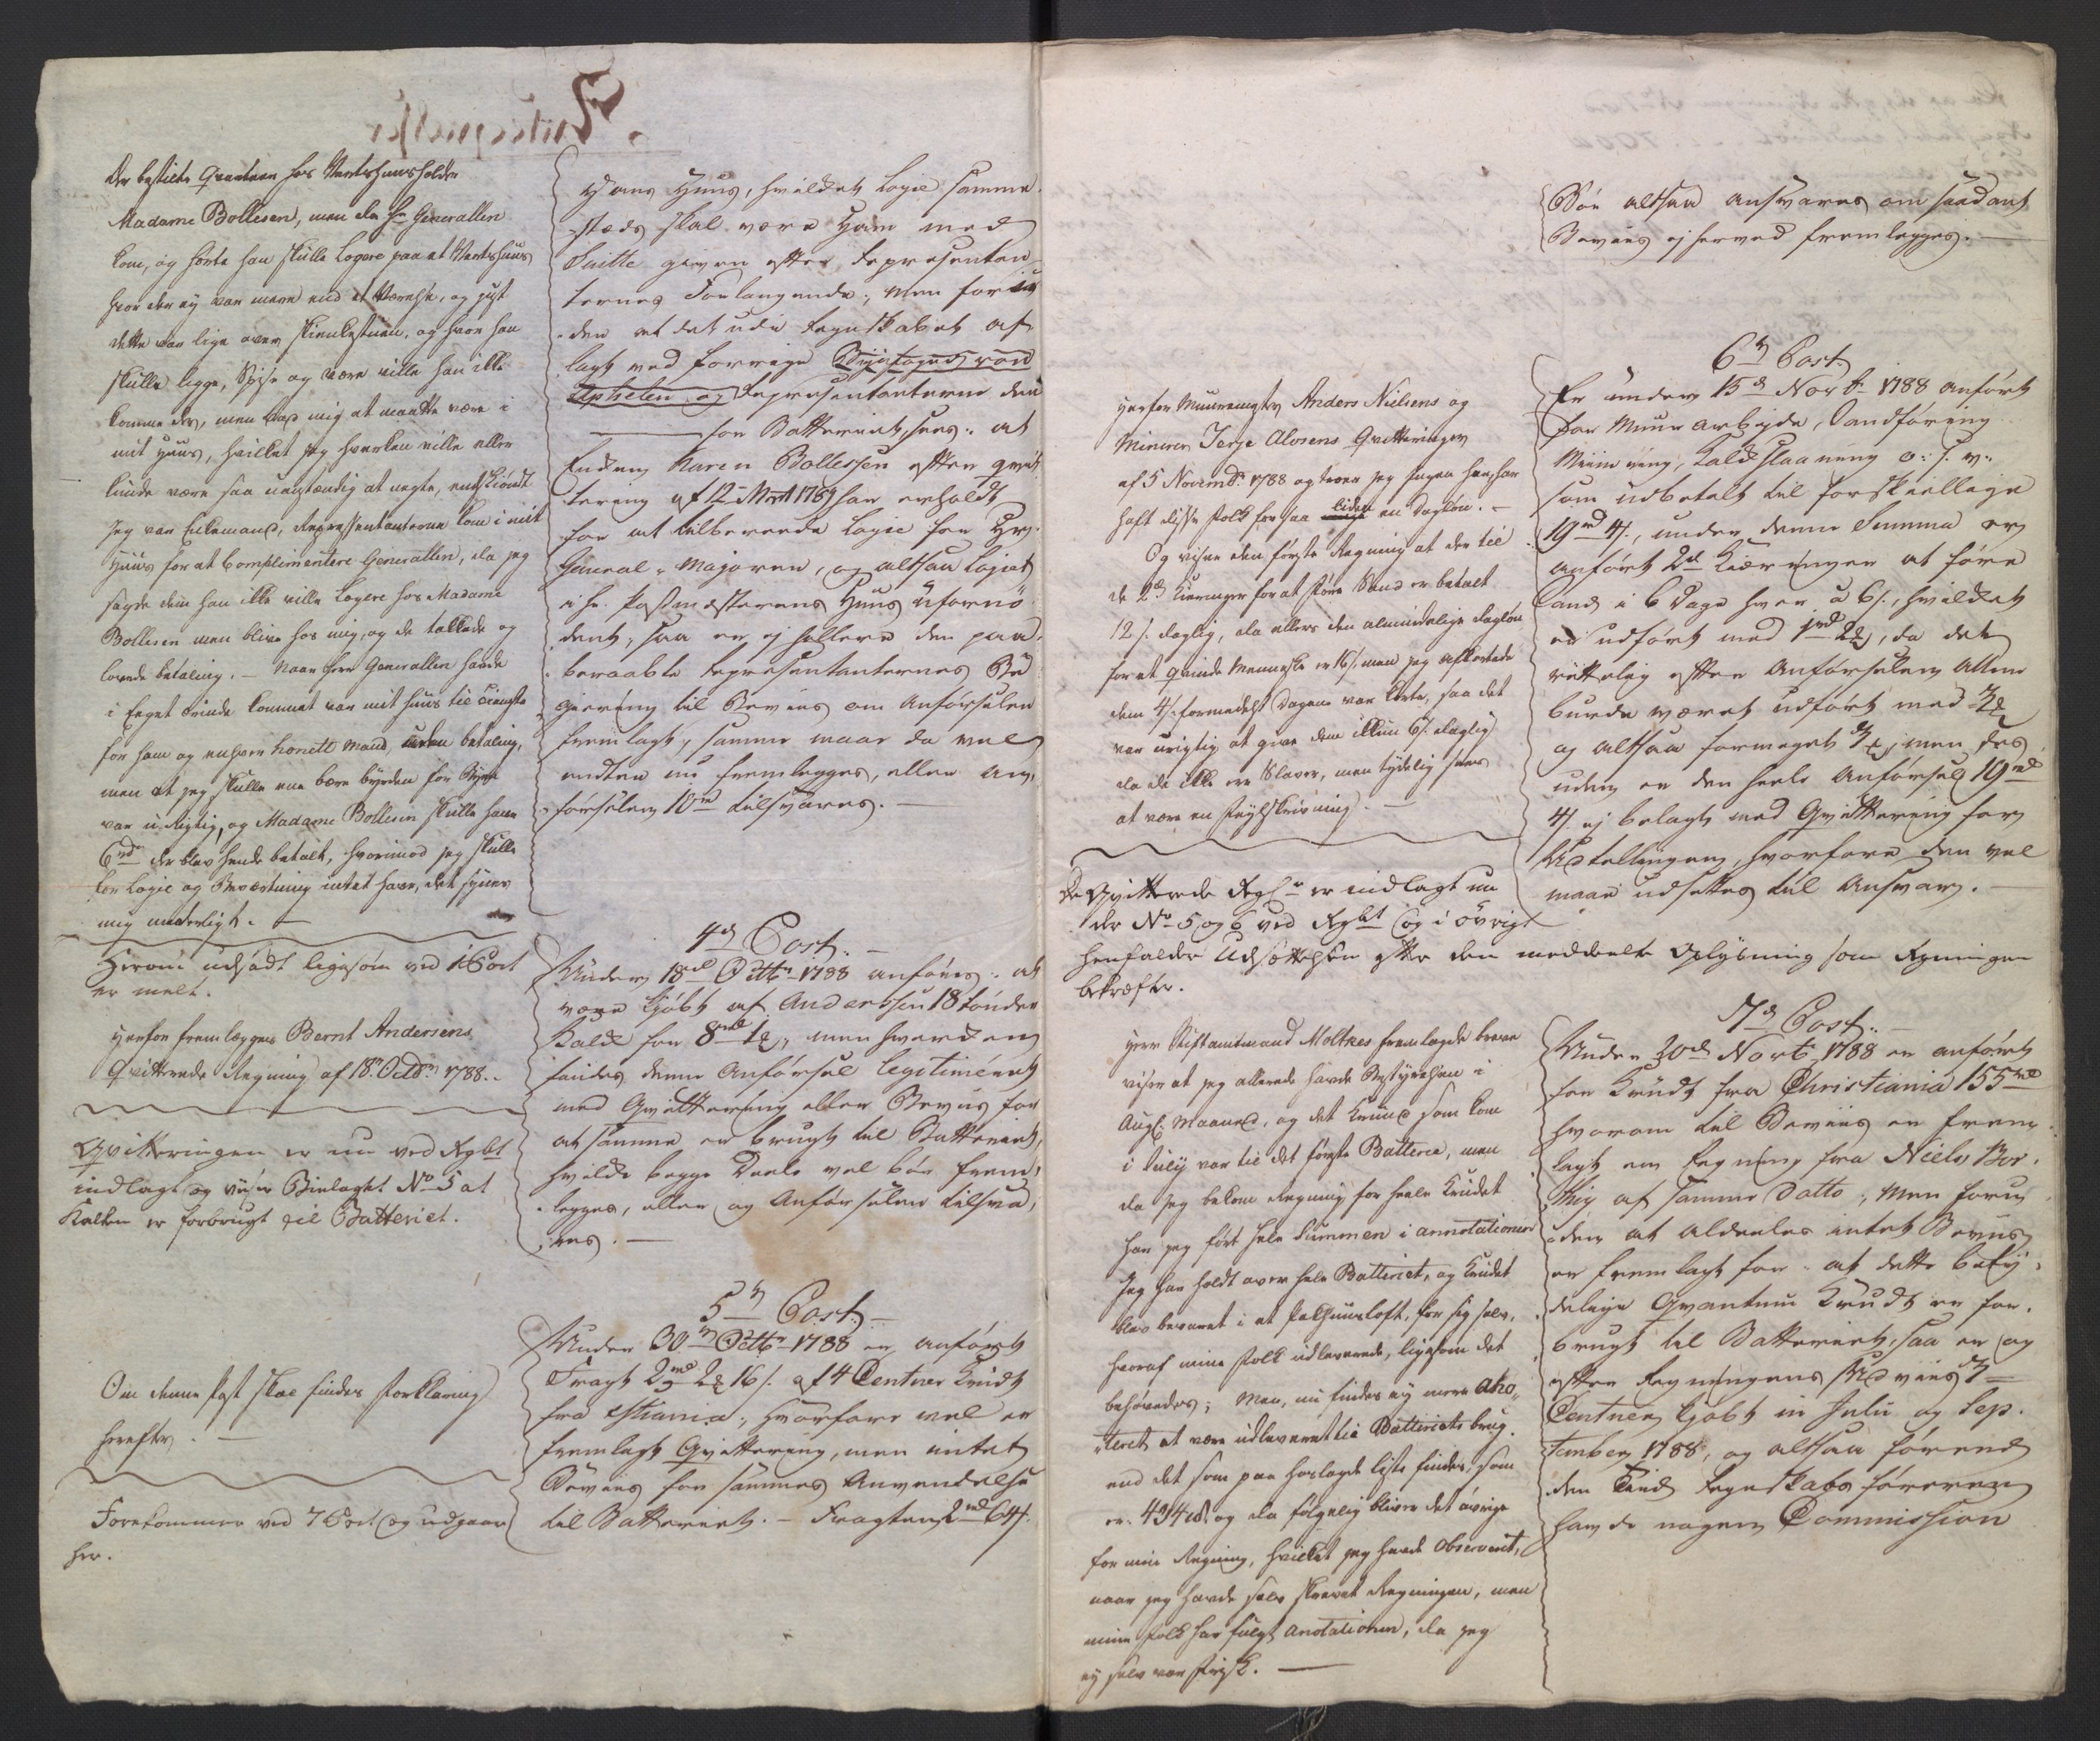 der bestilte Qvarteer hos Vertshuusholder
Madame Bollesen, men da Hr Generallen
kom, og hørte han skulle Logere paa et Vertshuus
hvor der ey var mere end et Værelse, og just
dette var lige over Skienkestuen, og hvor han
skulle ligge, Spise og være ville han ikke
komme der, men bad mig at maatte være i
mit Huus, hvilket jeg hverken ville eller
kunde være saa uanstændig at negte, endskiøndt
Jeg var Enkemand, Repressentanterne kom i mit
Huus for at Complimentere Generallen, da jeg
sagde dem han ikke ville Logere hos Madame
Bollesen men blive hos mig, og de takkede og
lovede betaling. — Naar Herr Generallen havde
i Eeget Erinde kommet var mit Huus til tieneste
for ham og enhver honett Mand, uden betaling,
men at jeg skulle ene bære byrden for Byen
var urigtig, og Madame Bollesen skulle have
6rd der blev hende betalt, hvorimod jeg skulle
for Logie og Beværtning intet have, det synes
mig underligt. —
Herom udsadt ligesom ved 1 Post
er melt.
Herfor fremlægges Bernt Andersens
Qvitterede Regning af 18n Octbr 1788..
Qvitteringen er nu ved Rgbt
indlagt og viiser Bielaget No 5 at
Kalken er forbrugt til Batteriet.
Om denne Post skal findes Forklaring
herefter. —
Forekommer ved 7 Post og udgaar
her.
Hans Huus, hvilket Logie samme-
stæds skal være Ham med
Suitte given efter Repræsentan-
ternes Forlangende; men foru-
den at det udi Regnskabet af-
lagt ved forrige
og Repræsentanterne den
for Batteriet, sees: at
Enken Karen Bollessen efter qvit-
tering af 12 Mart 1789 har erholdt
for at tilberede Logie for Hr.
General-Majoren, og altsaa Logiet
i Hr. Postmesterens Huus ufornø-
dent, saa er ej hellere den paa-
beraabte Repræsentanternes Be-
giering til Beviis om Anførselen
fremlagt; samme maae da vel
endten nu fremlegges, eller An-
førselen 10rd tilsvares. —
4d Post. —
Under 18d Octbr 1788 anføres: at
være kjøbt af Anderssen 18 tønder
Kalk for 8rd 1, men hverken
findes denne Anførsel legitimeret
med Qvittering eller Beviis for
at samme er brugt til Batteriet,
hvilke begge Deele vel bør frem-
legges, eller og Anførselen tilsva-
res. —
5d Post. —
Under 30d Octbr 1788 er anført
Fragt 2rd 2 16 s. af 4 Centner Krudt
fra Xstiania; hvorfore vel er
fremlagt Qvittering, men intet
Beviis for sammes Anvendelse
til Batteriet. — Fragten 2rd 64 s.
Bør altsaa ansvares om saadant
Beviis ej herved fremlegges. —
Herfor Muurmester Anders Nielsens og
Minerer Terje Alosens Qvitteringer
af 5 Novembr 1788 og troer jeg Ingen her, har
haft disse Folk for saa liden en Dagløn. —
Og viser den første Regning at der til
de 2de Kieringer for at føre Sand er betalt
12 s. daglig, da ellers den almindelige dagløn
for et qvinde Menneske er 16 s. men jeg afkortede
dem 4 s. formedelst Dagene var korte, saa det
var urigtig at give dem ikkun 6 s. daglig
da de ikke ere Slaver, men tydelig sees
at være en Feylskrivning. —
De Qvitterede Regnr er indlagt un
der No 5 og 6 ved Rgbt og i øvrigt
henfalder Udsættelsen efter den meddeelte Oplysning som Regningen
bekræfter.
Herr Stiftamtmand Moltkes fremlagde breve
viser at jeg allerede havde Bestyrelsen i
Augt Maaned, og det Krudt som kom
i July var til det første Batterie, men
da jeg bekom Regning for heele Krudet
har jeg ført hele Summen i annotationen
Jeg har holdt over hele Batteriet, og Krudet
blev bevaret i et Pakhuusloft, for sig selv,
hvoraf mine Folk udleverede, ligesom det
behøvedes; Men, nu findes ey mere
at være udleveret til Batteriets brug.
end det som paa hoslagde liste findes, som
er 494 og da følgelig bliver det øvrige
for min Regning, hvilket jeg havde Observeret,
naar jeg havde selv skrevet Regningen, men
mine folk har fulgt anotationen, da jeg
ey selv var Frisk. —
6d Post.
Er under 15d Novbr 1788 anført
for Muur arbejde, Sandføring
Minering, Kalkslaaning o: s: v:
som udbetalt til forskiellige
19rd 4 s., under denne Summa er
anført 2de Kieringer at føre
Sand i 6 Dage hver a 6 s., hvilket
er udført med 1rd 2, da det
rettelig efter Anførselen allene
burde været udført med
og altsaa formeget ; men des-
uden er den heele Anførsel 19rd
4 s. ej belagt med Qvittering for
Udtellingen, hvorfore den vel
maae udsettes til Ansvar. —
7d Post. —
Under 30d Novbr 1788 er anført
for Krudt fra Christiania 155rd
hvorom til Beviis er frem-
lagt en Regning fra Niels Ber-
thig af samme Datto; Men foru-
den at aldeeles intet Beviis
er fremlagt for: at dette bety-
delige Qvantum Krudt er for-
brugt til Batteriet, saa er og
efter Regningens Udviis
Centner kjøbt in Julii og Sep-
tember 1788, og altsaa førend
den Tiid Regnskabsføreren
havde nogen Commission